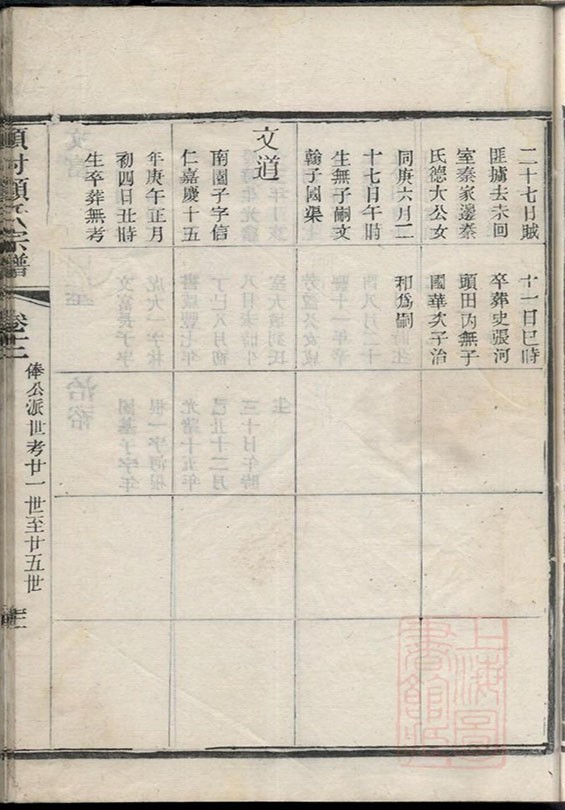 二十七日賊
匪擄去未回
室秦家邊秦
氏德大公女
同庚六月二
十七日午時
生無子嗣文
翰子國渠
文道
南園子字信
仁嘉慶十五
年庚午正月
初四日丑時
生卒葬無考
十一日巳時
卒葬史張河
頭田內無子
國華次子治
和爲嗣
宗譜
卷十二
俸公派世考廿一世至廿五世
上海圖
書館藏